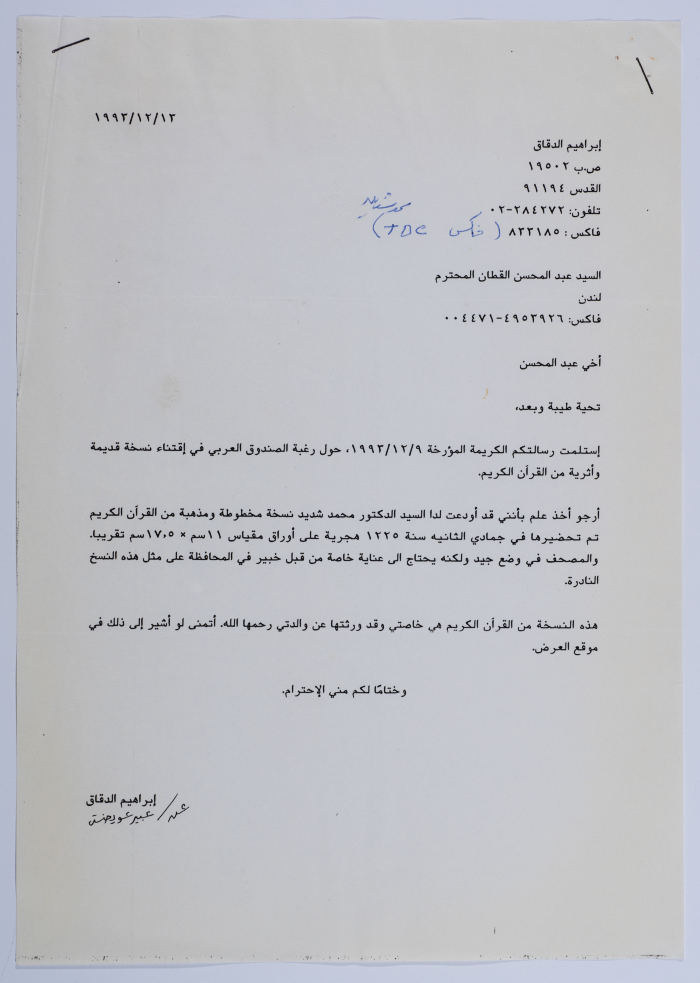 ١٩٩٣/١٢/١٣
إبراهيم الدقاق
ص.ب ١٩٥٠٢
القدس ٩١١٩٤
تلفون: ٢٨٤٢٧٢-٠٢
فاكس: ٨٣٣١٨٥ (فاكس TDC)
السيد عبد المحسن القطان المحترم
لندن
فاكس: ٤٩٥٣٩٢٦-٠٠٤٤٧١
أخي عبد المحسن
تحية طيبة وبعد،
إستلمت رسالتكم الكريمة المؤرخة ١٩٩٣/١٢/٩، حول رغبة الصندوق العربي في إقتناء نسخة قديمة
وأثرية من القرآن الكريم.
أرجو أخذ علم بأنني قد أودعت لدا السيد الدكتور محمد شديد نسخة مخطوطة ومذهبة من القرآن الكريم
تم تحضيرها في جمادي الثانيه سنة ١٢٢٥ هجرية على أوراق مقياس ١١سم × ١٧،٥سم تقريبا.
والمصحف في وضع جيد ولكنه يحتاج الى عناية خاصة من قبل خبير في المحافظة على مثل هذه النسخ
النادرة.
هذه النسخة من القرآن الكريم هي خاصتي وقد ورثتها عن والدتي رحمها الله. أتمنى لو أشير إلى ذلك في
موقع العرض.
وختامًا لكم مني الإحترام.
إبراهيم الدقاق
عن/ عبير عويضة